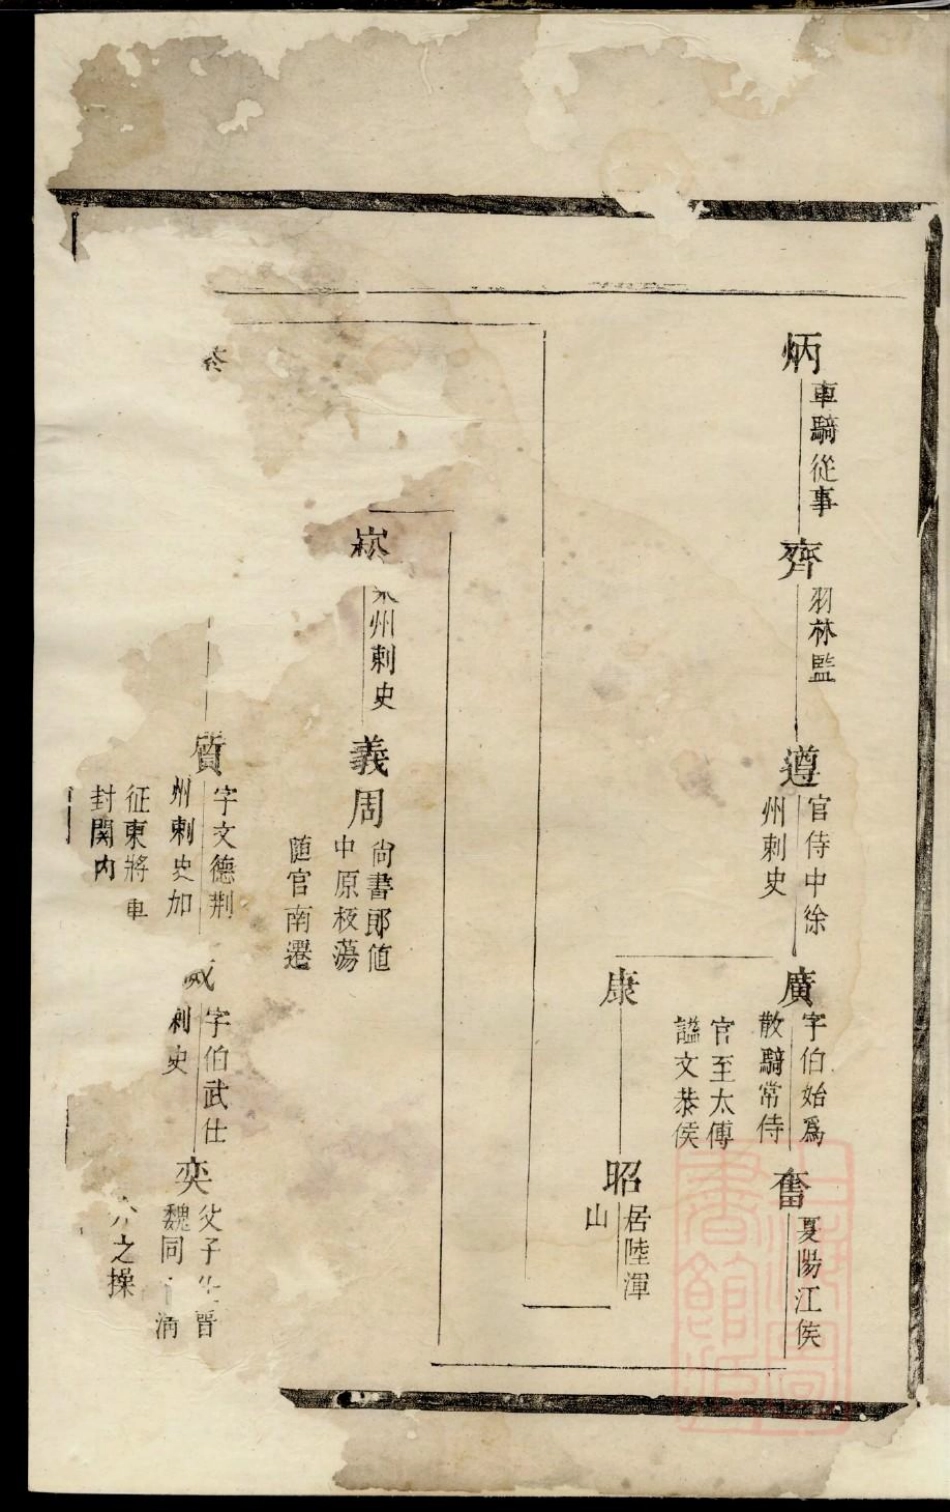 炳
車騎從事
齊
羽林監
遵
官侍中徐
州刺史
廣
字伯始爲
散騎常侍
奮
夏陽江侯
康
官至太傅
謚文恭侯
昭
居陸渾
山
崧
州刺史
義周
尚書郎值
中原板蕩
随官南遷
質
字文德荆
州刺史加
征東將車
封関内
威
字伯武仕
刺史
奕
父子仕晋
魏同
之操